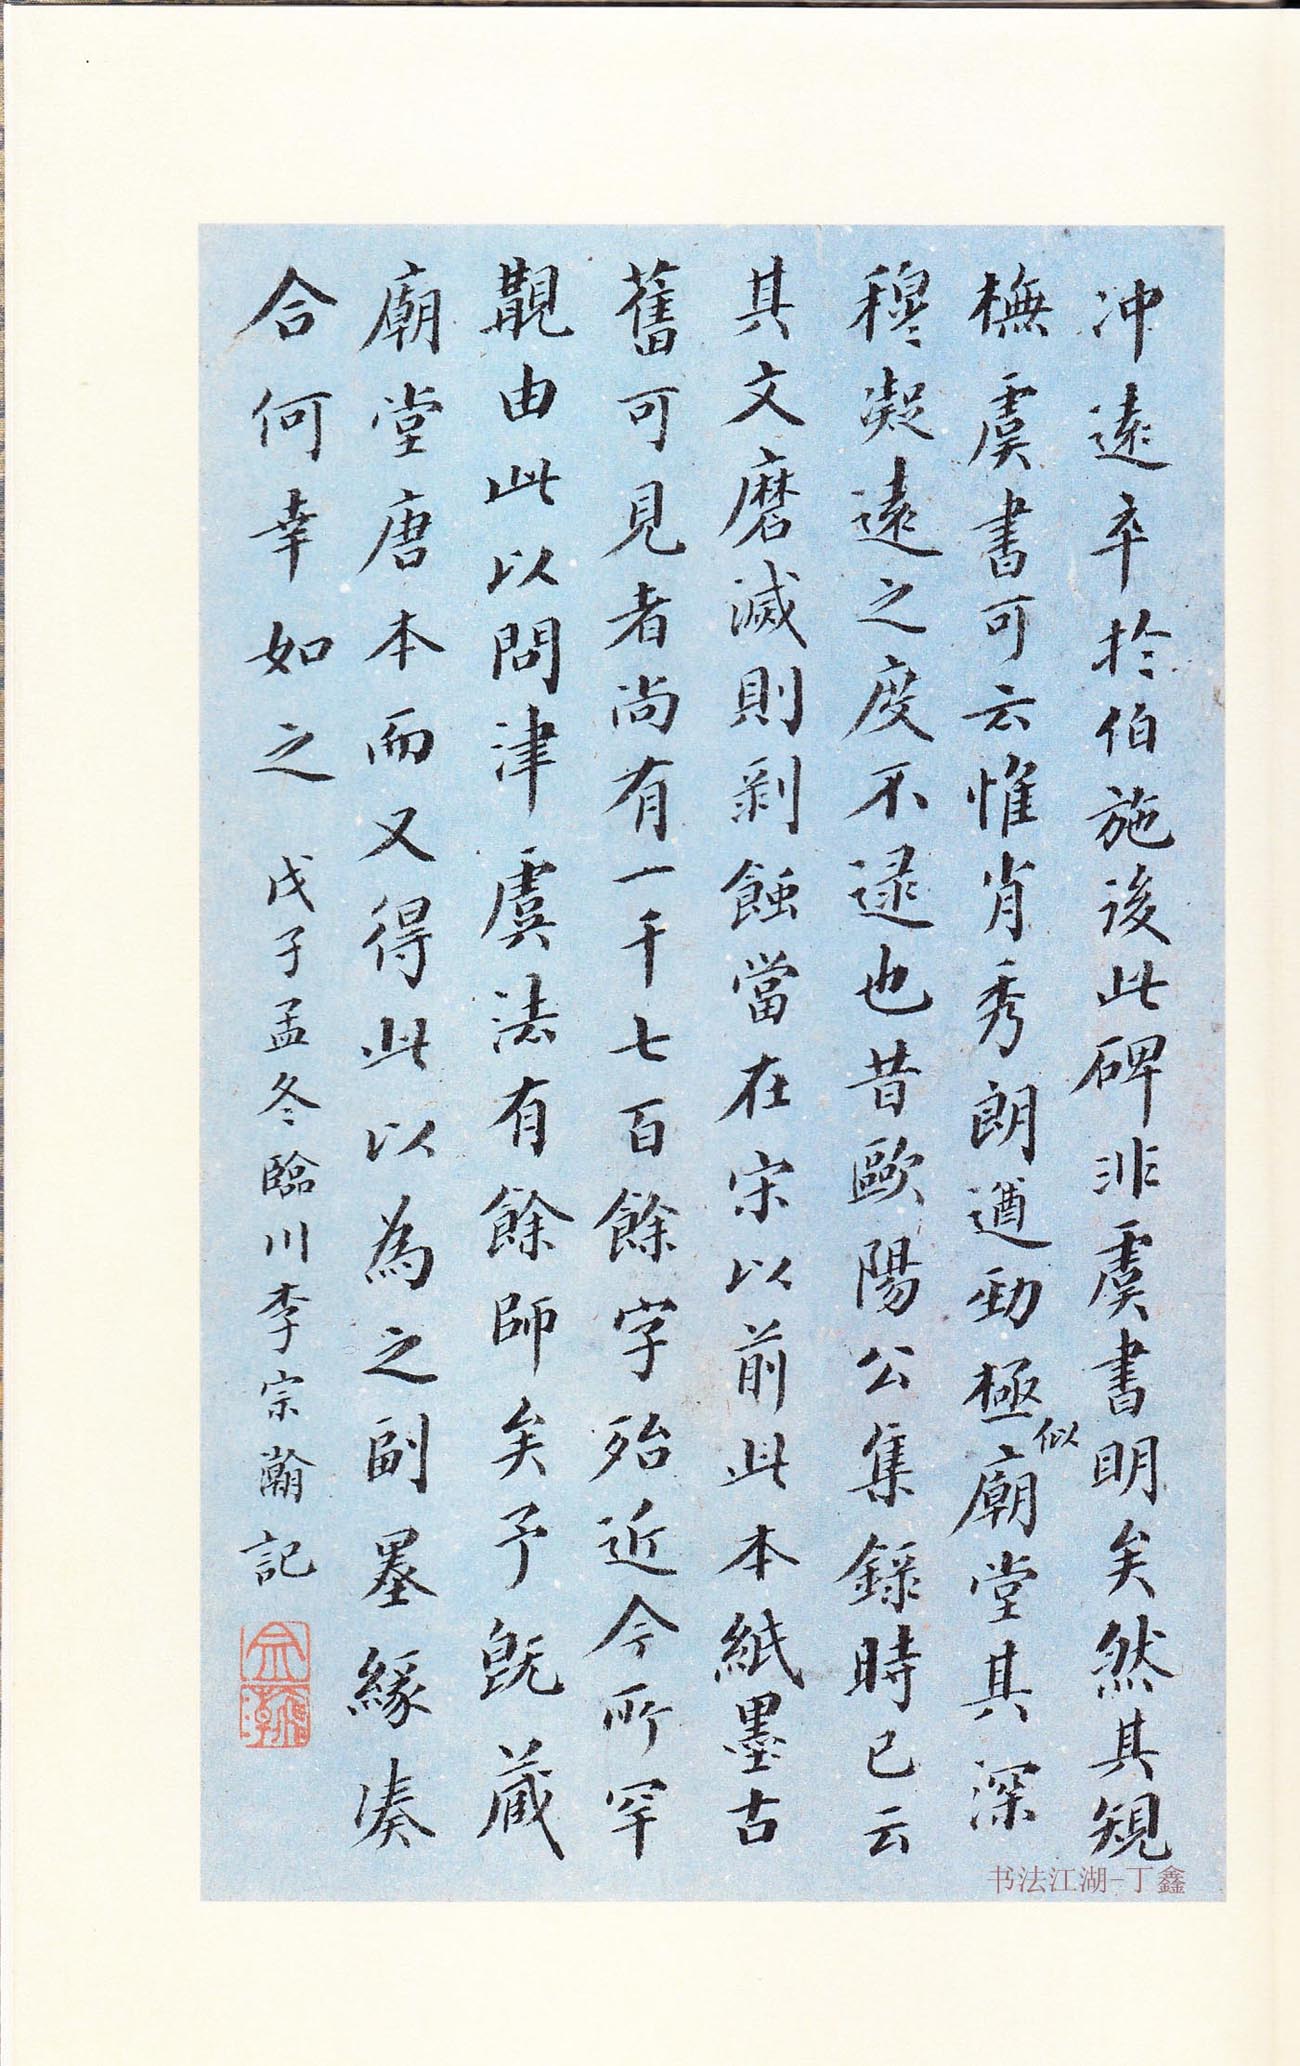 冲遠卒於伯施後此碑非虞書明矣然其規
橅虞書可云惟肖秀朗遒勁極似廟堂其深
穆凝遠之度不逮也昔歐陽公集錄時已云
其文磨滅則剥蝕當在宋以前此本紙墨古
舊可見者尚有一千七百餘字殆近今所罕
覯由此以問津虞法有餘師矣予既蔵
廟堂唐本而又得此以為之副墨緣湊
合何幸如之
戊子孟冬臨川李宗瀚記
书法江湖-丁鑫